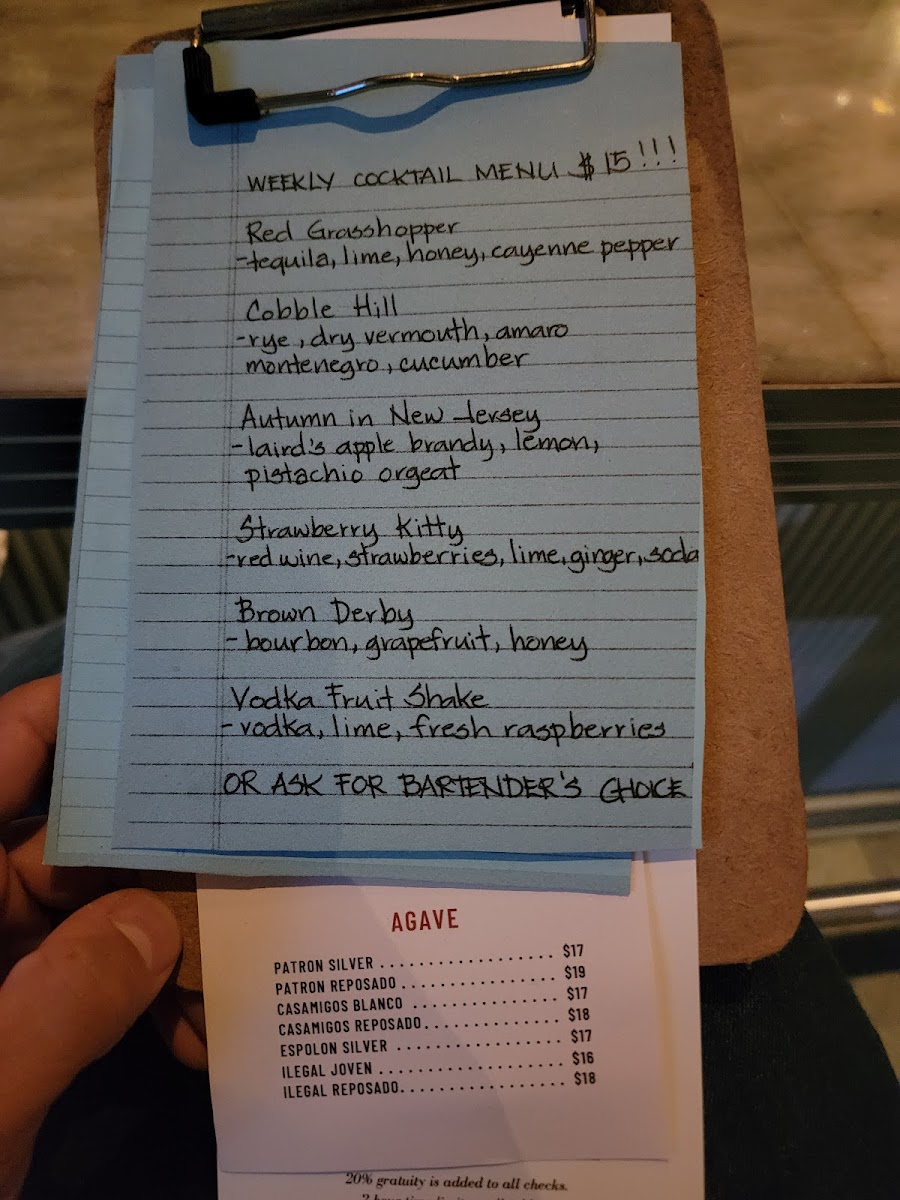 WEEKLY COCKTAIL MENU $15!!!
Red Grasshopper
-tequila, lime, honey, cayenne pepper
Cobble Hill
-rye, dry vermouth, amaro
montenegro, cucumber
Autumn in New Jersey
-laird's apple brandy, lemon,
pistachio orgeat
Strawberry Kitty
-red wine, strawberries, lime, ginger, soda
Brown Derby
-bourbon, grapefruit, honey
Vodka Fruit Shake
-vodka, lime, fresh raspberries
OR ASK FOR BARTENDER'S CHOICE
AGAVE
PATRON SILVER .................. $17
PATRON REPOSADO ................ $19
CASAMIGOS BLANCO ............... $17
CASAMIGOS REPOSADO.............. $18
ESPOLON SILVER ................. $17
ILEGAL JOVEN ................... $16
ILEGAL REPOSADO................. $18
20% gratuity is added to all checks.